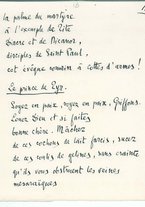 la palme du martyre
à l'exemple de Tite
Diacre et de Nicanor,
disciples de Saint Paul,
est évêque romain à cottes d'armes !
Le prince de Tyr.
Soyez en paix, soyez en paix, Griffons.
Louez Dieu et si faites
bonne chère. Mâchez
de ces cochons de lait farcis, sucez
de ces coulis de gelines, sans crainte
qu'ils vous obstruent les veines
mésaraïques